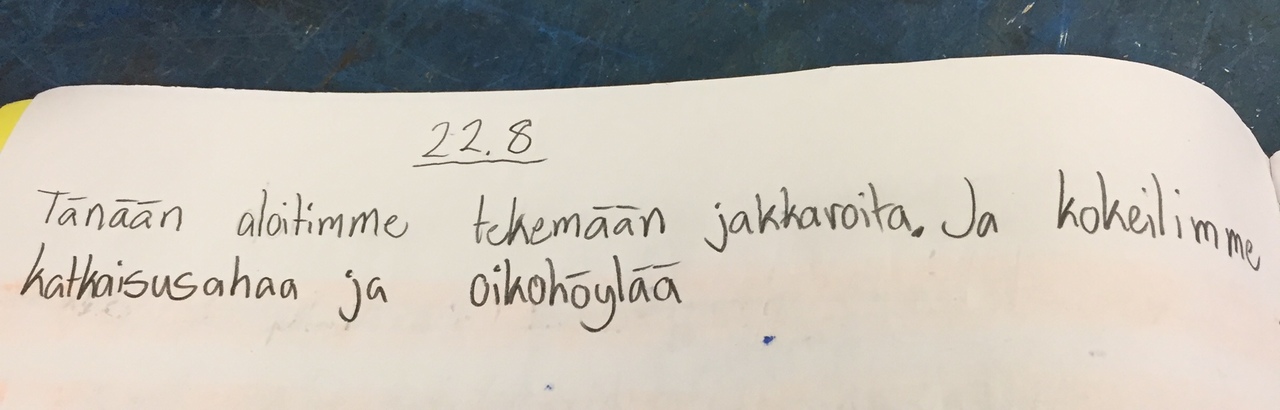 22.8
Tänään aloitimme tekemään jakkaroita. Ja kokeilimme
katkaisusahaa ja oikohöylää